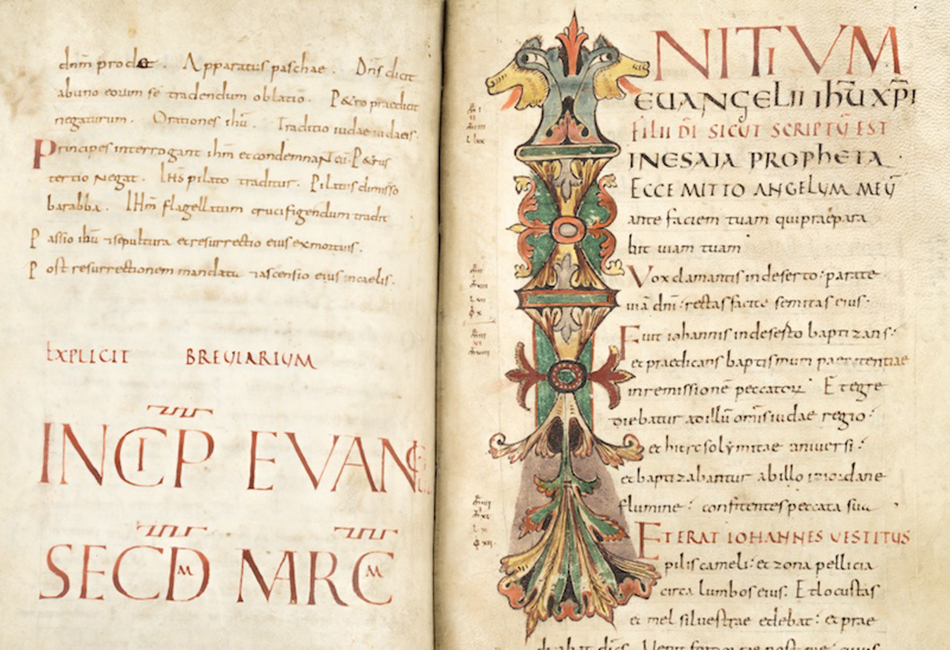 dnm prodet. Apparatus paschae. Dns dicit
abuno eorum se tradendum oblatio. P&ro praedicit
negaturum. Orationes ihu. Traditio iudae iudaeis.
Principes interrogant ihm et condemnant eu. P&rus
tertio negat. IHS pilato traditus. Pilatus dimisso
barabba. IHm flagellatum crucifigendum tradit
Passio ihu & sepultura et resurrectio eius ex mortuis.
Post resurrectionem mandatu & ascensio eius in caelis.
EXPLICIT BREUIARIUM
INCIP EVANG
SECD MRC
NITIUM
EUANGELII IHU XPI
FILII DI SICUT SCRIPTU EST
IN ESAIA PROPHETA
ECCE MITTO ANGELUM MEU
ante faciem tuam qui praepara
bit uiam tuam
Vox clamantis in deserto: parate
uia dni: rectas facite semitas eius.
Fuit iohannis in deserto baptizans:
et praedicans baptismum paenitentiae
in remissione peccatoru. Et egre
diebatur ad illu omnis iudae regio:
et hierosolymitae uniuersi:
et baptizabantur ab illo in iordane
flumine: confitentes peccata sua
ET ERAT IOHANNES UESTITUS
pilis cameli: et zona pellicia
circa lumbos eius. Et locustas
et mel siluestrae edebat: et prae
dicabat dices. Uenit fortior me post me: cuius